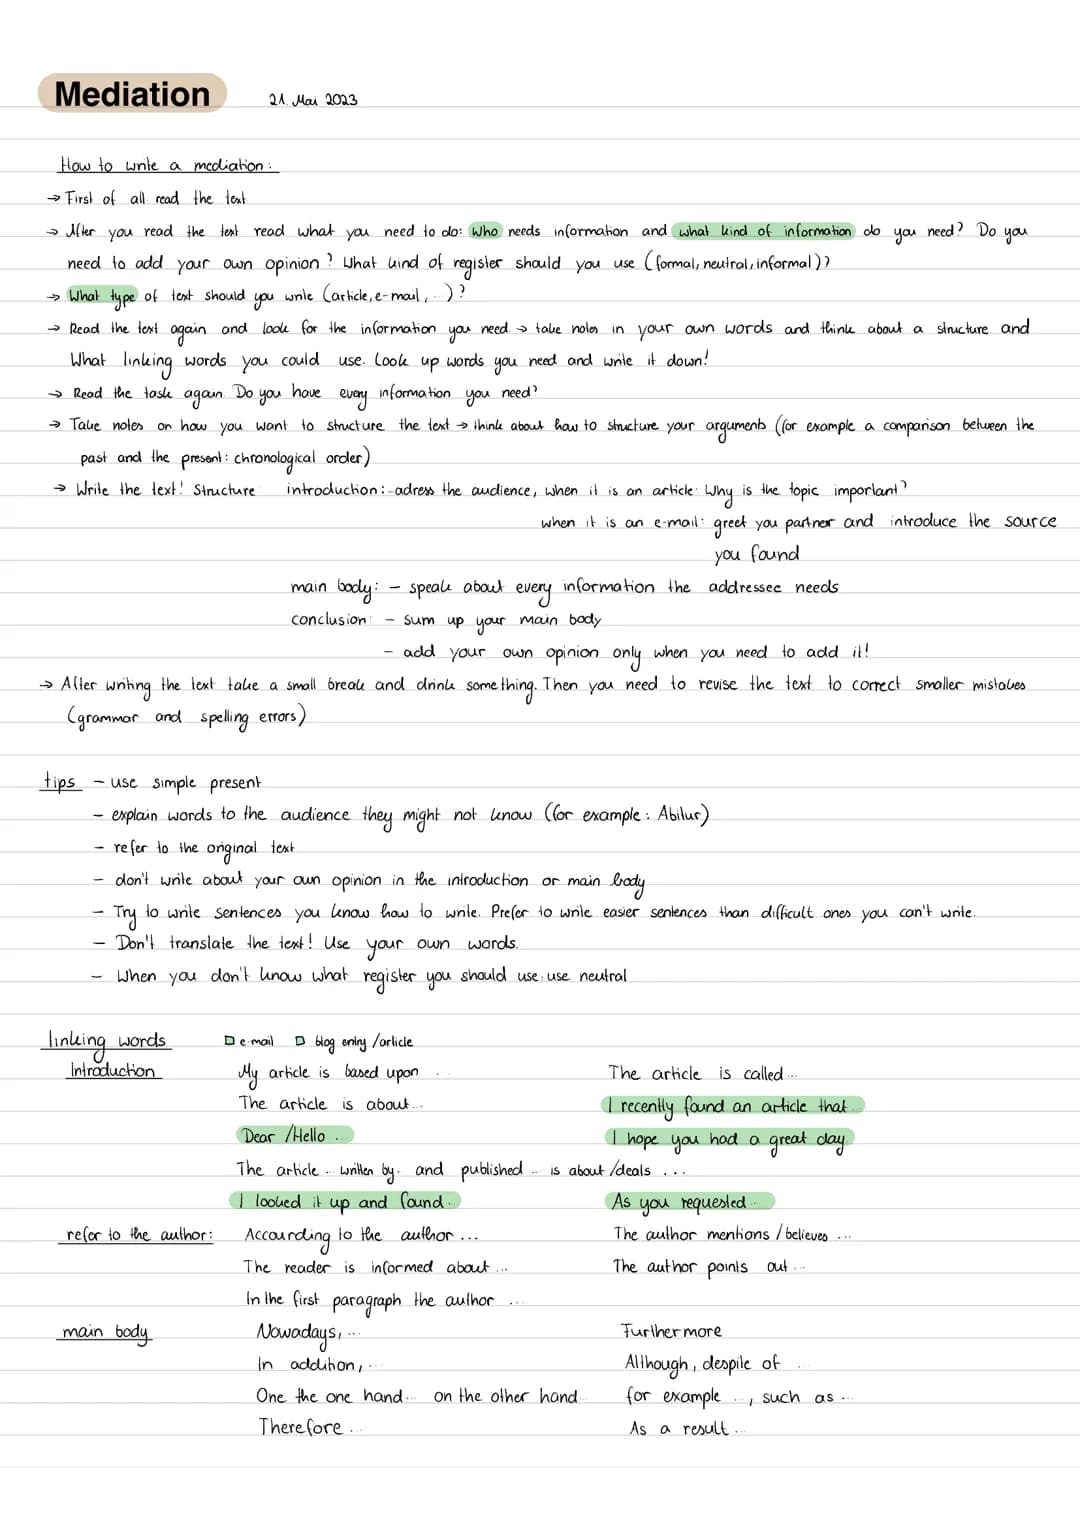 Mediation 21. Mai 2023
How to write a mediation:
→ First of all read the text
→ After you read the text read what you need to do: Who needs information and what kind of information do you need? Do you
need to add your own opinion? What kind of register should you use (formal, neutral, informal)?
→ What type of text should you write (article, e-mail, ...)?
→ Read the text again and look for the information you need → take notes in your own words and think about a structure and
What linking words you could use. Look up words you need and write it down!
→ Read the task again. Do you have every information you need?
→ Take notes on how you want to structure the text → think about how to structure your arguments (for example a comparison between the
past and the present: chronological order)
→ Write the text! Structure: introduction: - adress the audience, when it is an article: Why is the topic important?
when it is an e-mail: greet you partner and introduce the source
you found
main body: - speak about every information the addressee needs
conclusion: - sum up your main body
- add your own opinion only when you need to add it!
→ After writing the text take a small break and drink something. Then you need to revise the text to correct smaller mistakes
(grammar and spelling errors)
tips - use simple present
- explain words to the audience they might not know (for example: Abitur)
- refer to the original text
- don't write about your own opinion in the introduction or main body
- Try to write sentences you know how to write. Prefer to write easier sentences than difficult ones you can't write.
- Don't translate the text! Use your own words.
- When you don't know what register you should use: use neutral
linking words e-mail blog entry/article
Introduction My article is based upon ... The article is called ...
The article is about... I recently found an article that ...
Dear /Hello ... I hope you had a great day
The article ... written by... and published ... is about /deals ...
I looked it up and found... As you requested ...
refer to the author: Accourding to the author ... The author mentions / believes ...
The reader is informed about ... The author points out ...
In the first paragraph the author ...
main body Nowadays, ... Furthermore
In addition, ... Although, despite of ...
One the one hand... on the other hand... for example ..., such as ...
Therefore ... As a result ...